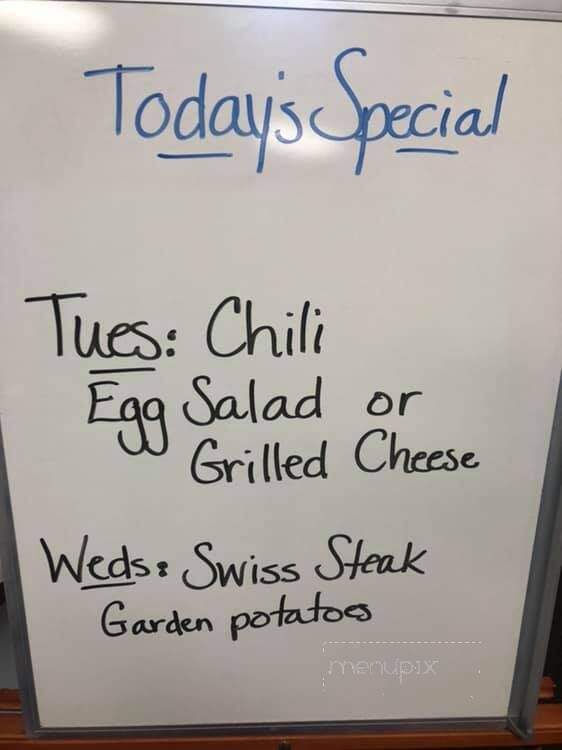 Today's Special
Tues: Chili
Egg Salad or
Grilled Cheese
Weds: Swiss Steak
Garden potatoes
menupix